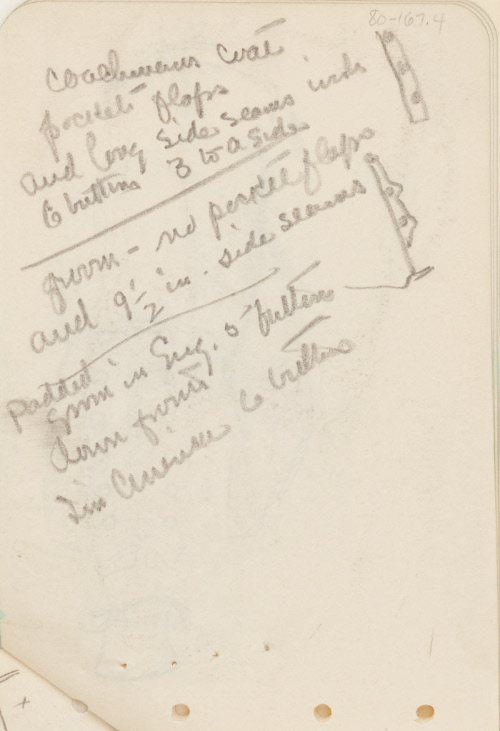 80-167.4
Coachmans coat
pockets flaps
and long side seams with
6 buttons 3 to a side
groom - no pocket flaps
and 9 1/2 in. side seams
padded
groom in Eng. 5 buttons
down front
in America 6 buttons
+